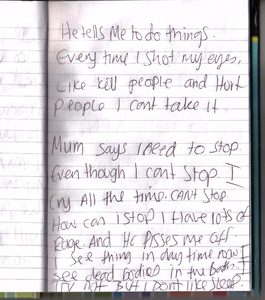 He tells Me to do things.
Every time I shot my eyes,
Like kill people and Hurt
People I cant take it.
Mum says I need to stop
Even though I cant stop I
Cry All the time. CANT Stop.
How can I stop I Have lots of
Rage. And He Pisses me off
I see thing in day time now I
see dead bodies in the bath.
Try not But I Dont like sleep.